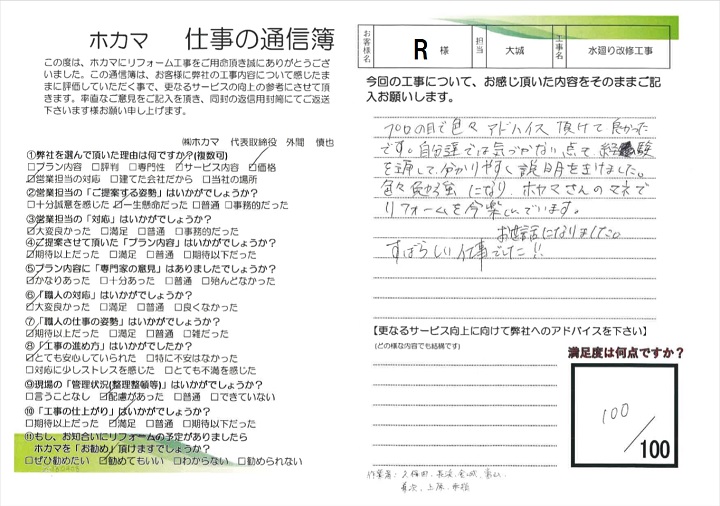 ホカマ 仕事の通信簿
この度は、ホカマにリフォーム工事をご用命頂き誠にありがとうござ
いました。この通信簿は、お客様に弊社の工事内容について感じたまま
に評価していただく事で、更なるサービスの向上の参考にさせて頂
きます。率直なご意見をご記入を頂き、同封の返信用封筒にてご返送
下さいます様お願い申し上げます。
㈱ホカマ 代表取締役 外間 慎也
①弊社を選んで頂いた理由は何ですか?(複数可)
□プラン内容 □評判 □専門性 □サービス内容 □価格
□営業担当の対応 □建てた会社だから □当社の場所
②営業担当の「ご提案する姿勢」はいかがでしょうか?
□十分誠意を感じた □一生懸命だった □普通 □事務的だった
③営業担当の「対応」はいかがでしょうか?
□大変良かった □満足 □普通 □事務的だった
④ご提案させて頂いた「プラン内容」はいかがでしょうか?
□期待以上だった □満足 □普通 □期待以下だった
⑤プラン内容に「専門家の意見」はありましたでしょうか?
□かなりあった □十分あった □普通 □殆んどなかった
⑥「職人の対応」はいかがでしょうか?
□大変良かった □満足 □普通 □良くなかった
⑦「職人の仕事の姿勢」はいかがでしょうか?
□期待以上だった □満足 □普通 □雑だった
⑧「工事の進め方」はいかがでしたか?
□とても安心していられた □特に不安はなかった
□対応に少しストレスを感じた □とても不満を感じた
⑨現場の「管理状況(整理整頓等)」はいかがでしょうか?
□言うことなし □配慮があった □普通 □できていない
⑩「工事の仕上がり」はいかがでしょうか?
□期待以上だった □満足 □普通 □期待以下だった
⑪もし、お知合いにリフォームの予定がありましたら
ホカマを「お勧め」頂けますでしょうか?
□ぜひ勧めたい □勧めてもいい □わからない □勧められない
お客様名 R 様 担当 大城 工事名 水廻り改修工事
今回の工事について、お感じ頂いた内容をそのままご記
入お願いします。
プロの目で色々アドバイス頂けて良かった
です。自分達では気づかない点で経験
を通して、分かりやすく説明をうけました。
色々勉強になり、ホカマさんのマネで
リフォームを今楽しんでいます。
お世話になりました。
すばらしい仕事でした!!
【更なるサービス向上に向けて弊社へのアドバイスを下さい】
(どの様な内容でも結構です)
満足度は何点ですか?
100
/100
作業者: